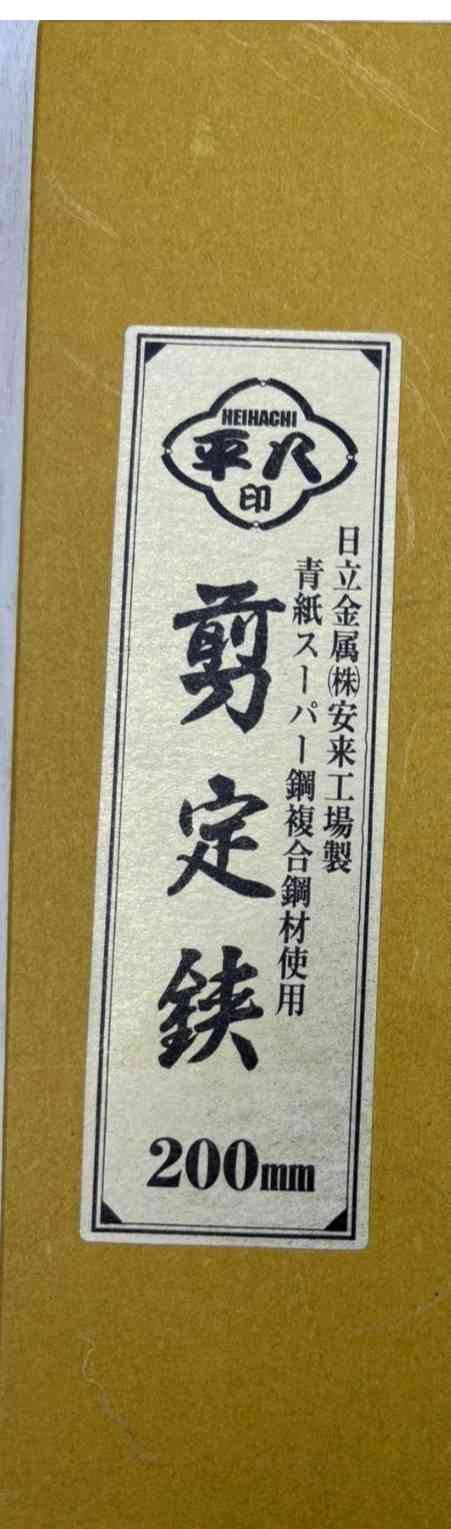 HEIHACHI
平八
印
日立金属㈱安来工場製
青紙スーパー鋼複合鋼材使用
剪定鋏
200mm